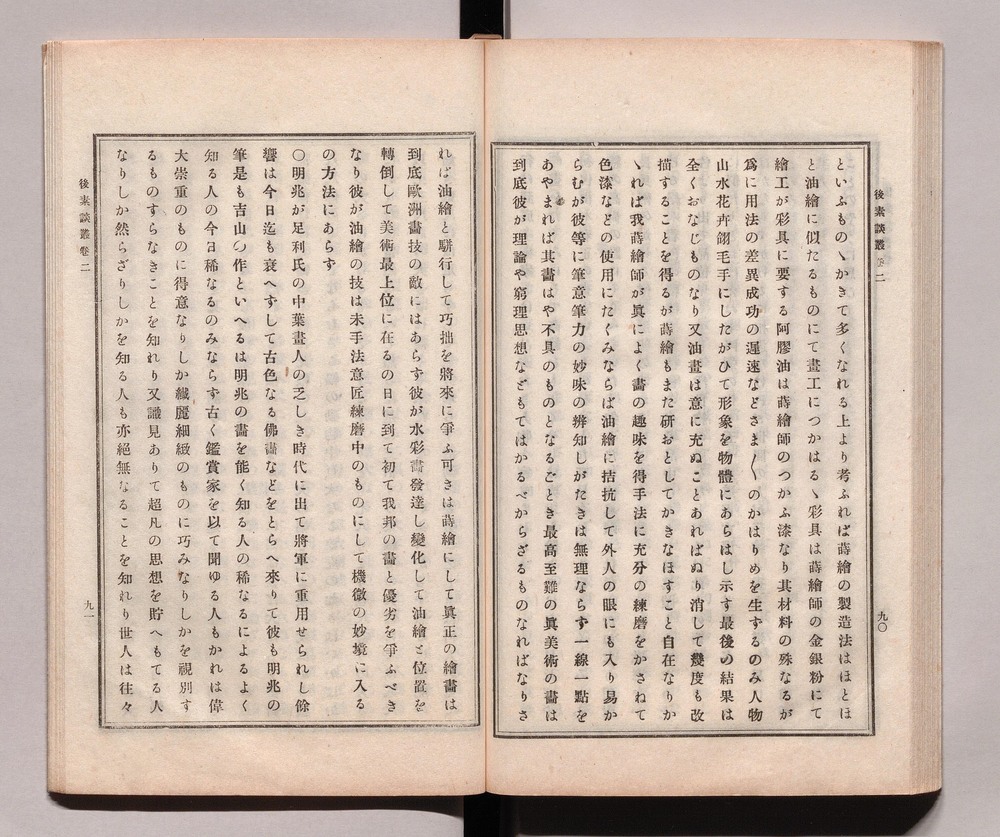 後素談叢卷二
九〇
といふものヽかきて多くなれる上より考ふれば蒔繪の製造法はほとほ
と油繪に似たるものにて畫工につかはるヽ彩具は蒔繪師の金銀粉にて
繪工が彩具に要する阿膠油は蒔繪師のつかふ漆なり其材料の殊なるが
爲に用法の差異成功の遲速などさま〴〵のかはりめを生ずるのみ人物
山水花卉翎毛手にしたがひて形象を物體にあらはし示す最後の結果は
全くおなじものなり又油畫は意に充ぬことあればぬり消して幾度も改
描することを得るが蒔繪もまた研おとしてかきなほすこと自在なりか
ヽれば我蒔繪師が眞によく畵の趣味を得手法に充分の練磨をかさねて
色漆などの使用にたくみならば油繪に拮抗して外人の眼にも入り易か
らむが彼等に筆意筆力の妙味の辨知しがたきは無理ならず一線一點を
あやまれば其畵はや不具のものとなるごとき最高至難の眞美術の畵は
到底彼が理論や窮理思想などもてはかるべからざるものなればなりさ
れば油繪と駢行して巧拙を將來に爭ふ可きは蒔繪にして眞正の繪畵は
到底歐洲畵技の敵にはあらず彼が水彩畵發達し變化して油繪と位置を
轉倒して美術最上位に在るの日に到て初て我邦の畵と優劣を爭ふべき
なり彼が油繪の技は未手法意匠練磨中のものにして機微の妙境に入る
の方法にあらず
〇明兆が足利氏の中葉畫人の乏しき時代に出て將軍に重用せられし餘
響は今日迄も衰へずして古色なる佛畵などをとらへ來りて彼も明兆の
筆是も吉山の作といへるは明兆の畵を能く知る人の稀なるによるよく
知る人の今日稀なるのみならず古く鑑賞家を以て聞ゆる人もかれは偉
大崇重のものに得意なりしか纎麗細緻のものに巧みなりしかを視別す
るものすらなきことを知れり又識見ありて超凡の思想を貯へもてる人
なりしか然らざりしかを知る人も亦絕無なることを知れり世人は往々
後素談叢卷二
九一